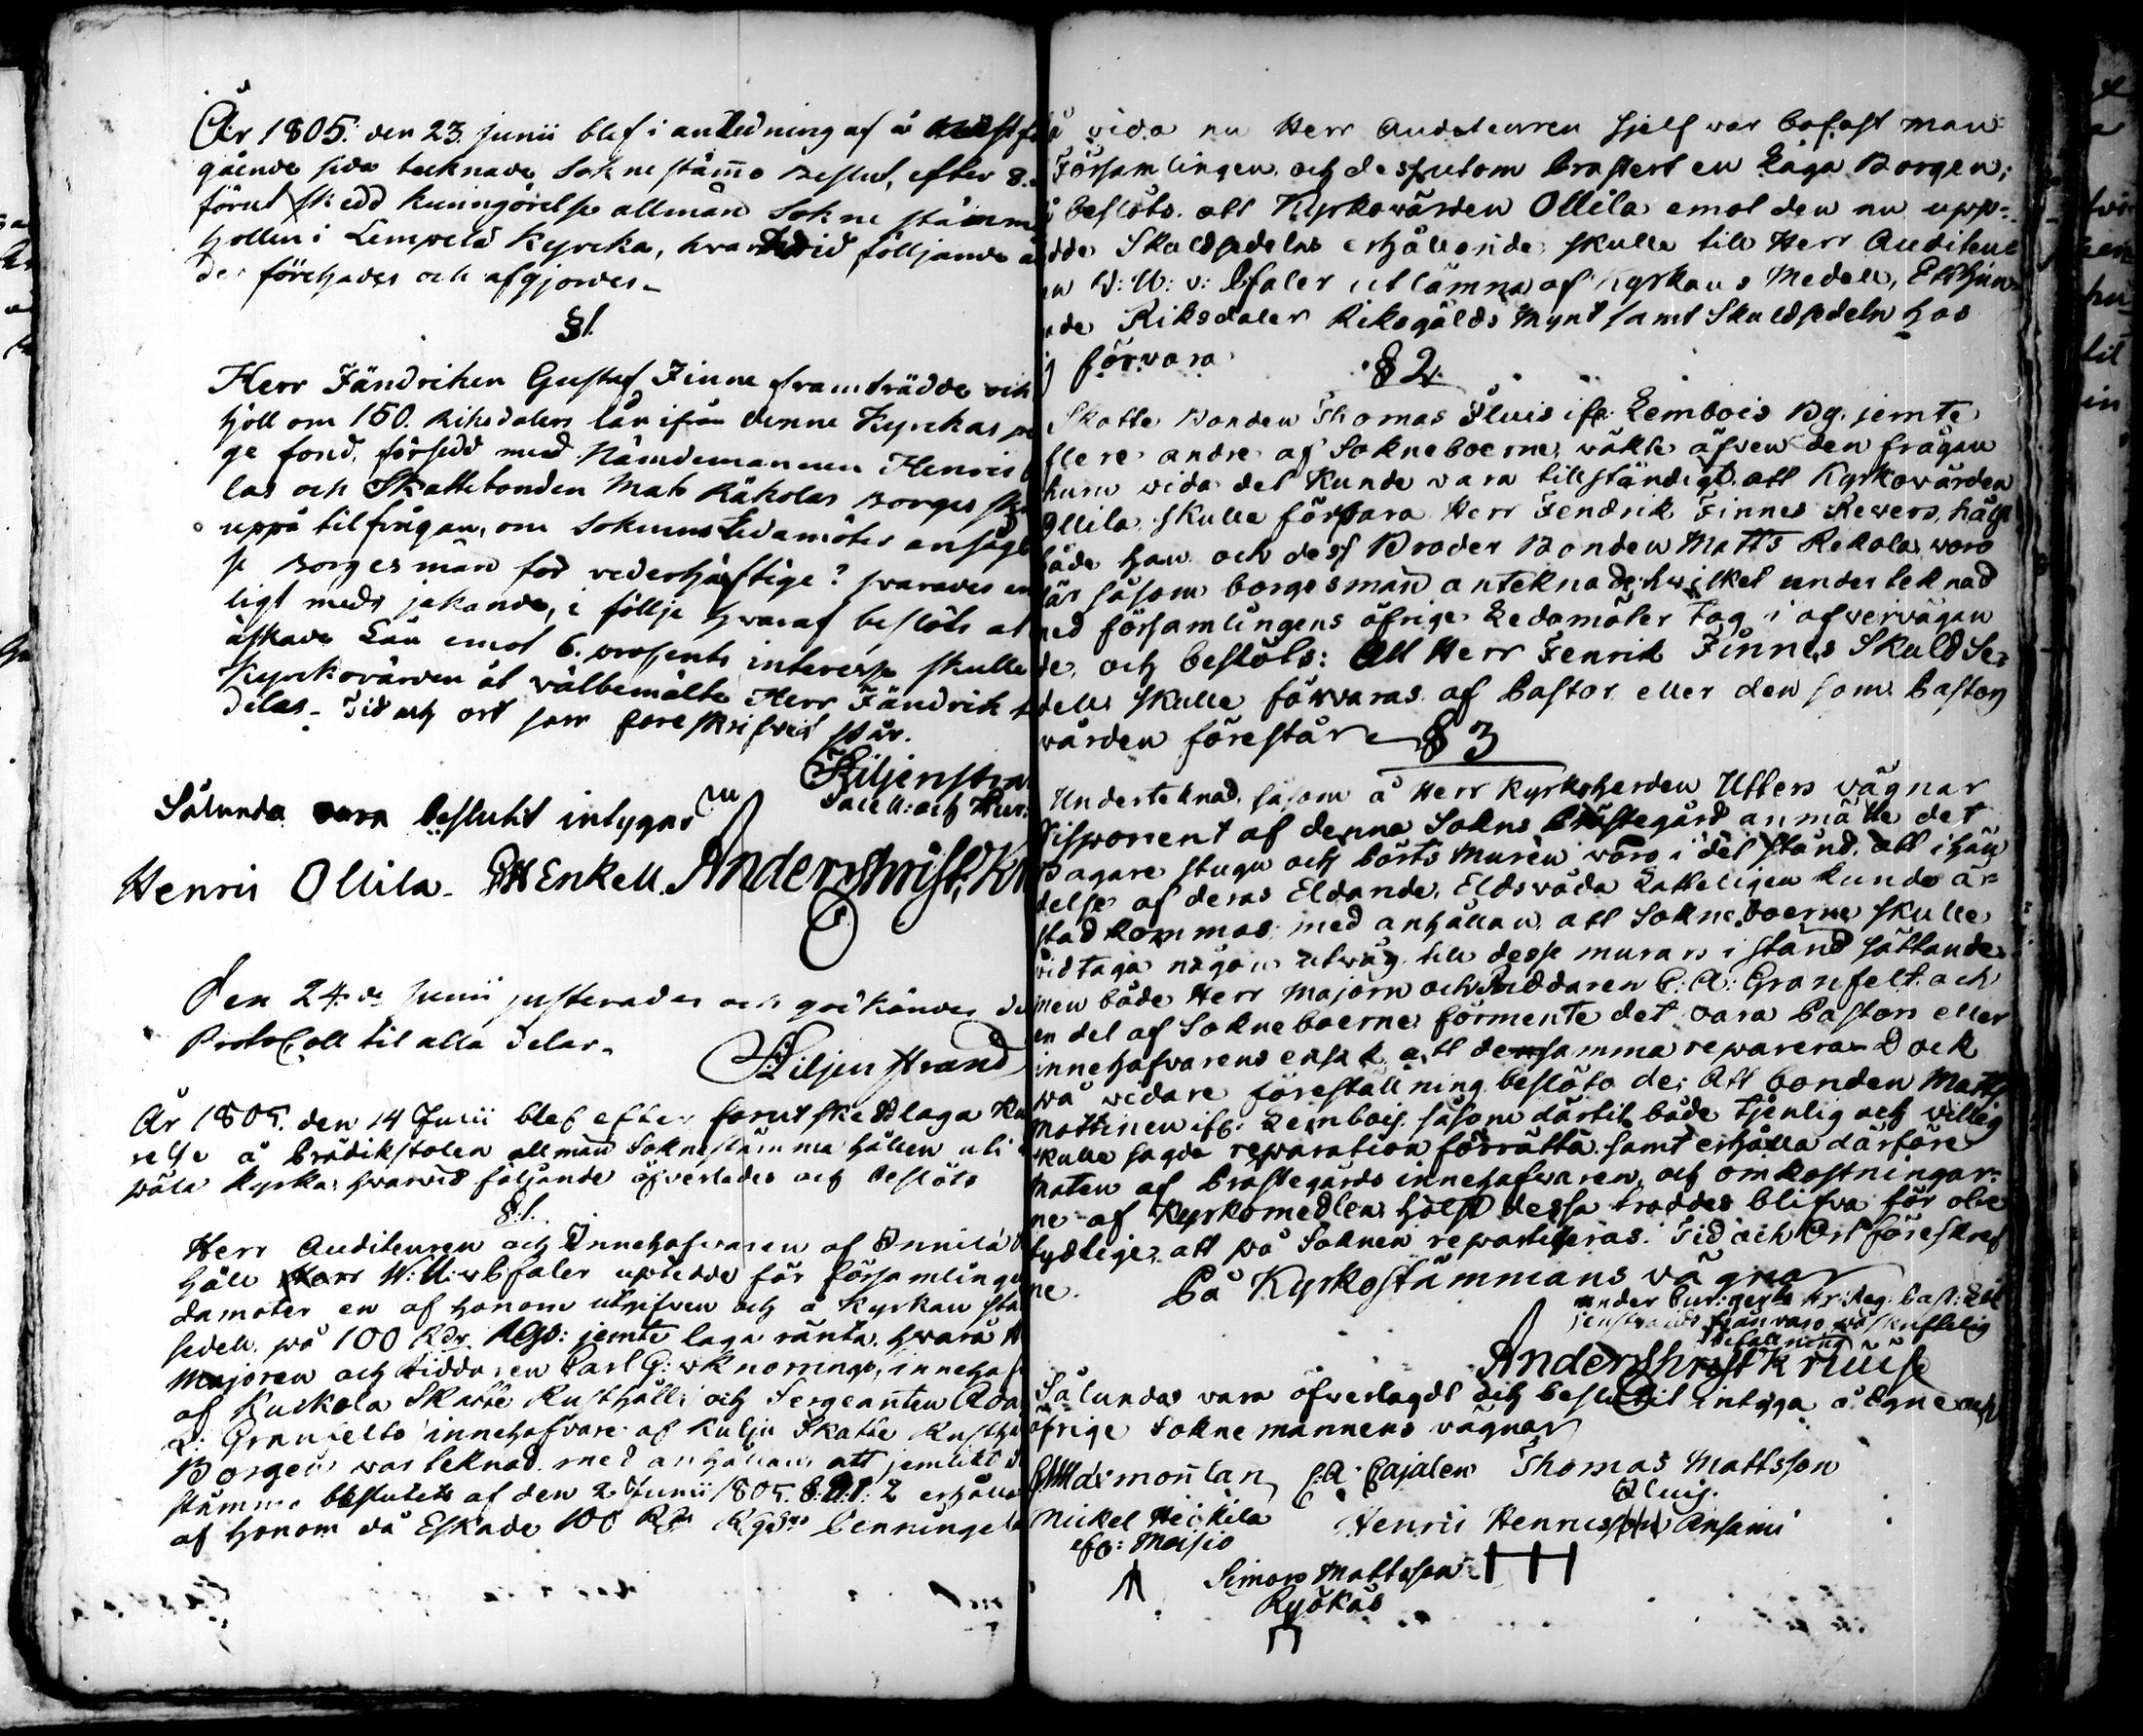 År 1805. den 23. Junii blef i anledning af å näst f
gående sida tecknade Sokne stämmo Beslut, efter 8.
förut skedd kuningörelse allmän Sokne stämm
hollen i Lempelä Kyrcka, hvarwid följande ä
der förehades och afgjordes.
§ 1.
Herr Fändriken Gustaf Finne framträdde och
höll om 150. Riksdalers lån ifrån denne Kyrckas pe
ge fond, försedd med Nämdemannen Henric O
las och Skattebonden Mats Räkolas Borges
uppå tilfrågan, om Soknens Ledamöter ansåge
se Borgesmän för vederhäftige? svarades en
ligt med jakande, i följe hwaraf beslöts at
äskade Lån emot 6. prosents interesse skulle
Kyrckovärden åt välbemälte Herr Fändrik
delas. Tid och ort som föreskrifvit står.
Liljenstran
Sacell: och
Sålunda vara beslutit intygar
Henric Ollila. Enkell. Anders Christ. Kr
Den 24de Junii justerades och godkändes de
Protocoll til alla delar.
Liljenstrand
År 1805. den 14 Junii blef efter förut skedd laga Ku
relse å Prädikstolen allmän Soknestämma hållen uti
päla Kyrka, hvarvid följande öfverlades och beslöts
§. 1.
Herr Auditeuren och Innehafvaren af Innilä
håll Herr W: U: v Pfaler uptedde för församlinge
damöter en af honom utgifven och å Kyrkan sta
sedell på 100 Rdr RGs: jemte laga ränta, hwarå H
Majoren och Riddaren Carl G: v Knorrings, innehaf
af Kuckola Skatte Rusthåll, och Sergeanten Ada
Granfelts innehafvare af Kulju Skatte Rustha
Borgen war teknad med anhållan att jemlikt
stämmo beslutets af den 2 Junii 1805. §. 1: 2 erhålla
af honom då Eskade 100 Rdr RGds Penninge
vida nu Herr Auditeuren sjelf var bofast man
Församlingen och dessutom præsterat en Laga Borgen;
beslöts. att Kyrkovärden Ollila emot den nu upp-
dde Skuldsedelns erhållande, skulle till Herr Auditeu
W: U: v: Pfaler utlämna af Kyrkans Medell, Etthun-
ade Riksdaler Riksgälds Mynt samt Skuldsedeln hos
förvara
§ 2.
Skatte Bonden Thomas ifr: Lembois By. jemte
flere andre af Sokneboerne, väkte äfven den frågan
huru vida det kunde vara tillständigt att Kyrkovärden
Ollila, skulle förvara Herr Fendrik Finnes Revers, hälst
både han och dess Broder Bonden Matts Rekola, voro
där såsom borgesmän anteknade, hvilket underteknad
med församlingens öfrige Ledamöter tog i öfvervägan
de, och beslöts: Att Herr Fenrik Finnes Skuld Se-
dell skulle förvaras af Pastor eller den som Pastors
vården förestår
§ 3
Underteknad, såsom å Herr Kyrkoherden Utters vägnar
Disponent af denne Sokns Prästegård anmälte det
Bagare stugu och Pörts Muren voro i det stånd, att i hän
delse af deras Eldande, Eldsvåda Latteligen kunde å-
stadkommas; med anhållan att Sokneboerne skulle
vidtaga någon utväg till desse murars i stånd sättande
men både Herr Majorn och Riddaren C: A: Granfelt och
en del af Sokneboerne förmente det vara Pastors eller
innehafvarens ensak att densamma reparera. Dock
på vidare föreställning beslöto de; Att bonden Matts
Mattinen ifr: Lembois. såsom därtil både tjenlig och villig
skulle sagde reparation förrätta samt erhålla därföre
maten af Prästegårds innehafvaren, och omkostningar-
ne af Kyrkomedlen, hälst dessa troddes blifva för obe
tydlige, att på Soknen repartiseras. Tid och Ort föreskref
ne.
På Kyrkostämmans vägnar
under
Anders Christ Kruuse
Sålunda vara öfverlagdt och beslutit intyga å Egne och
öfrige Sokne mannens vägnar
Cajalen Thomas Mattsson
Mickel Heickilä Henric Henricsson Ansami
ifr: Moisio
Simon Mattsson
Ryökäs